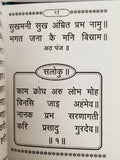 सुखमनी सुख अंम्रित प्रभ नामु ॥
भगत जना कै मनि बिस्राम ॥
सलोकु ॥
काम क्रोध अरु लोभ मोह
बिनसि जाइ अहंमेव ॥
नानक प्रभ सरणागती
करि प्रसादु गुरदेव ॥
॥ १ ॥